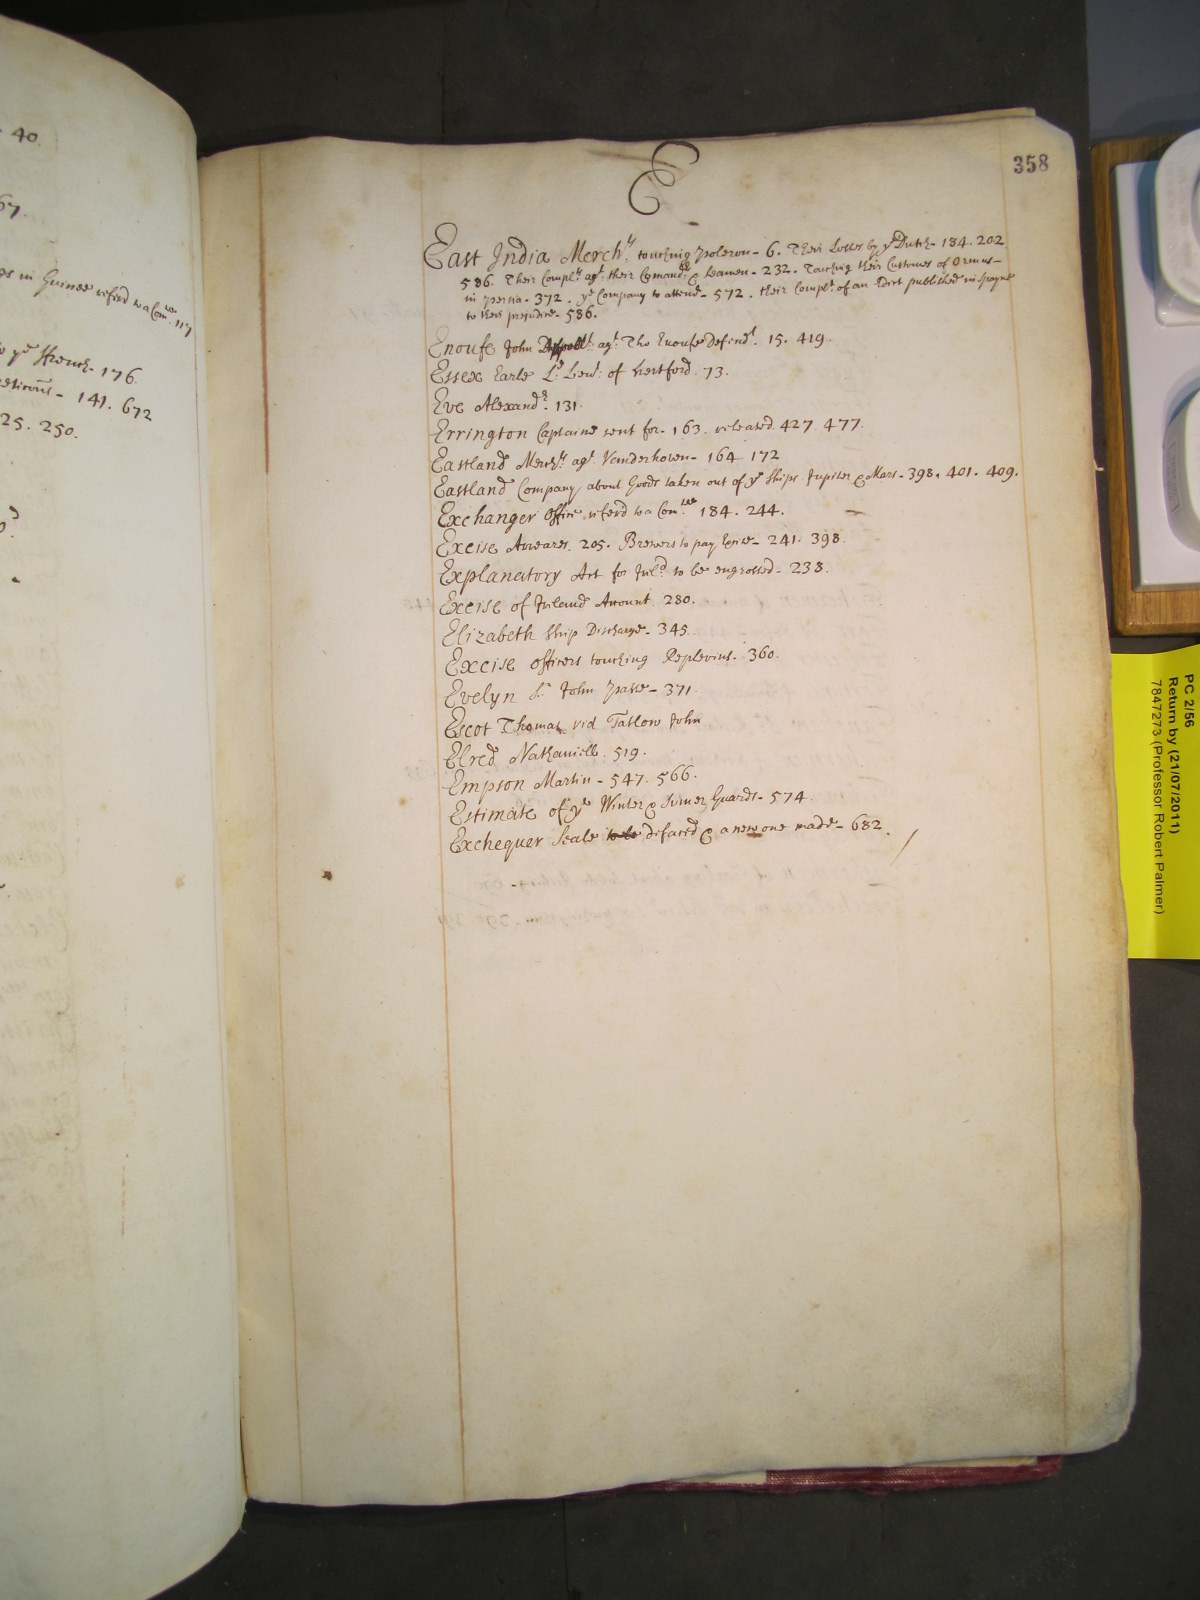 40
67.
in Guinee referd to a Com.ee 117
ye French - 176
141. 672
25. 250.
358
E
East India Merch.ts touching Poleron - 6. Their Losses by ye Dutch - 184. 202
586. Their Compl.t ag.t their Comand.rs & Seamen - 232. Touching their Customes of Ormus -
in Persia - 372. ye Company to attend - 572. their Compl.t of an Edict published in Spayne
to their prejudice - 586.
Enoufe John ag.t Tho Enoufe Defend.t 15. 419.
Essex Earle L.d Lieu.t of Hertford. 73.
Eve Alexand.r 131.
Errington Captaine sent for - 163. released 427. 477.
Eastland Merch.ts ag.t Vanderhoven - 164 172
Eastland Company about Goods taken out of ye Ships Jupiter & Mars - 398. 401. 409.
Exchanger Office referd to a Com.tee 184. 244.
Excise Arreares. 205. Brewers to pay Excise - 241. 398.
Explanatory Act for Irel.d to be engrossed - 238.
Excise of Ireland Account. 280.
Elizabeth Ship Discharge - 345.
Excise Officers touching Replevins. 360.
Evelyn S.r John Passe - 371.
Escot Thomas vid Tatlow John
Elred Nathaniell. 519.
Empson Martin - 547. 566.
Estimate of ye Winter & Sumer Guards - 574.
Exchequer Seale to be defaced & a new one made - 682.
PC 2/56
Return by (21/07/2011)
7847273 (Professor Robert Palmer)